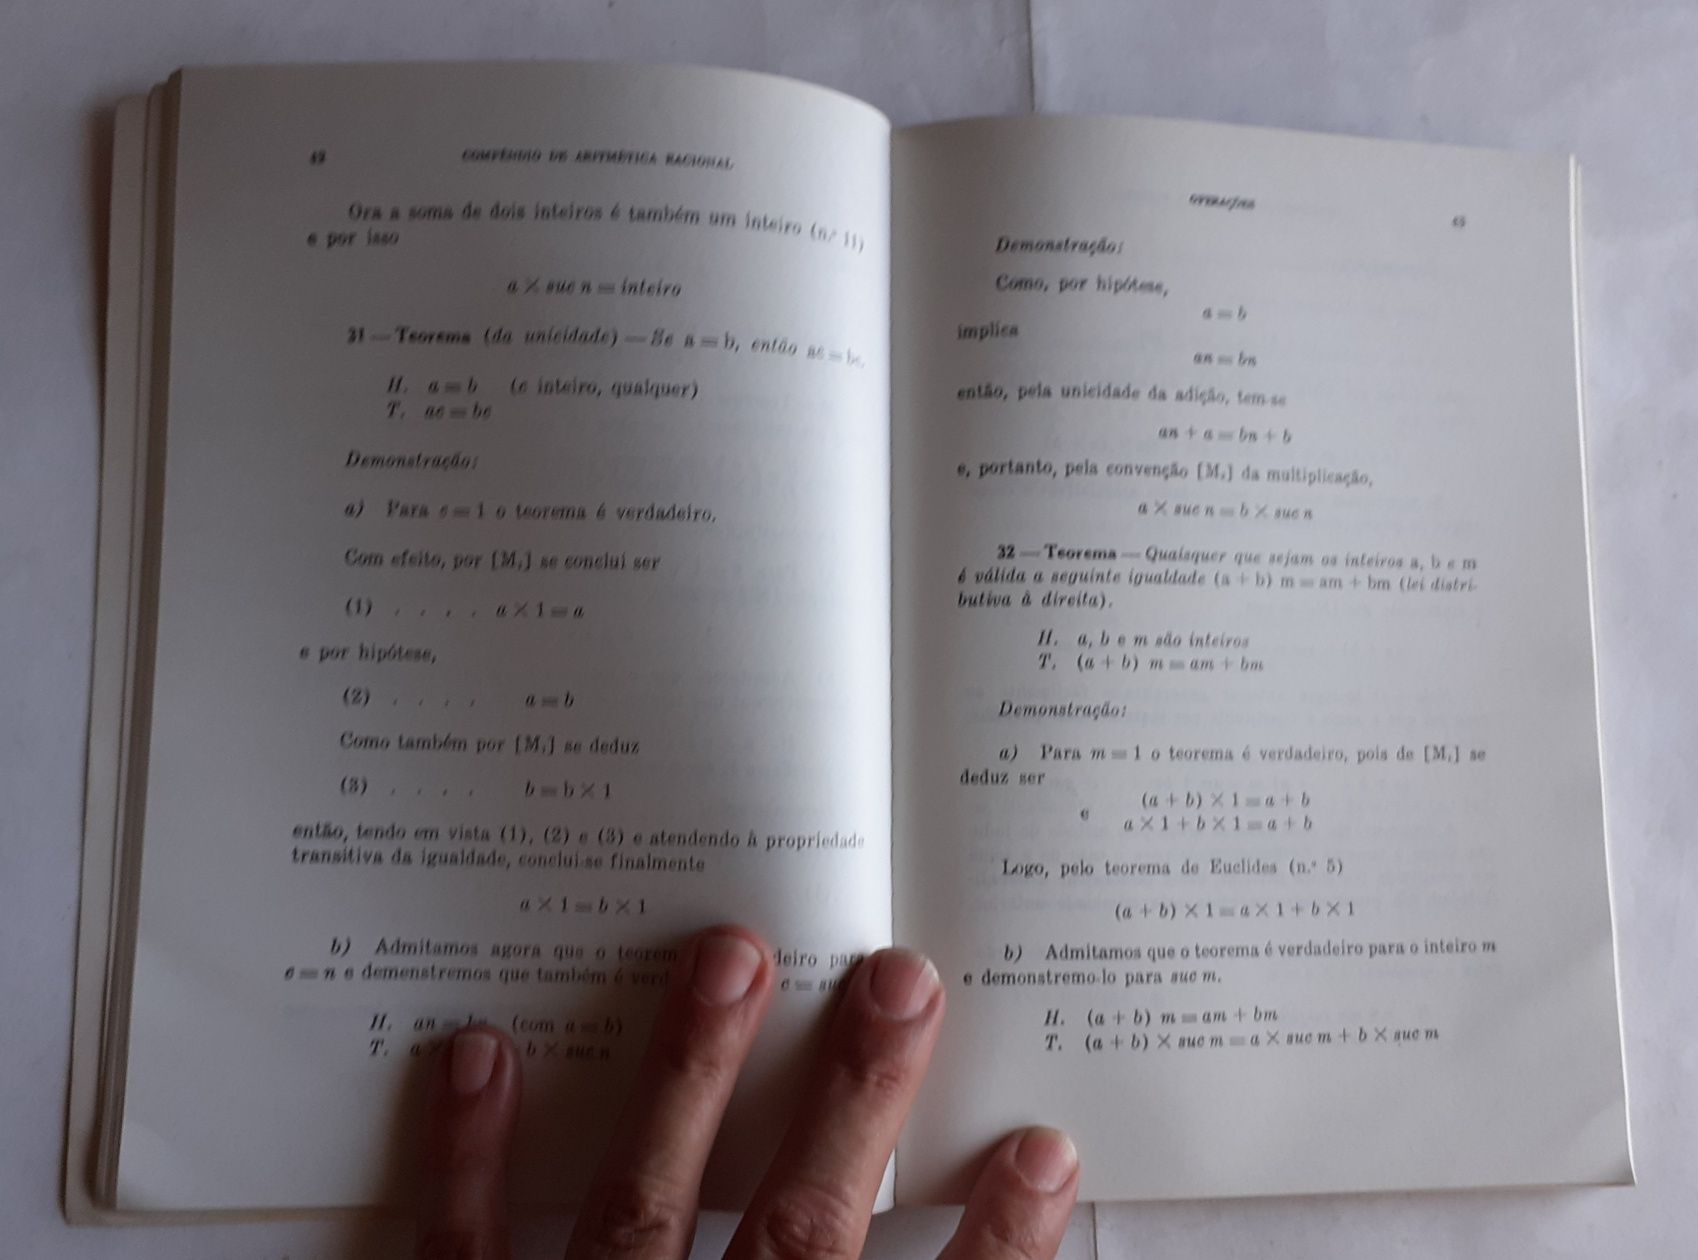 COMPÊNDIO DE ARITMÉTICA RACIONAL
Ora a soma de dois inteiros é também um inteiro (n.º 11)
e por isso
a × suc n = inteiro
31 — Teorema (da unicidade) — Se a = b, então ac = bc.
H. a = b (c inteiro, qualquer)
T. ac = bc
Demonstração:
a) Para c = 1 o teorema é verdadeiro.
Com efeito, por [M₁] se conclui ser
(1) . . . . a × 1 = a
e por hipótese,
(2) . . . . a = b
Como também por [M₁] se deduz
(3) . . . . b = b × 1
então, tendo em vista (1), (2) e (3) e atendendo à propriedade
transitiva da igualdade, conclui-se finalmente
a × 1 = b × 1
b) Admitamos agora que o teorem deiro para
c = n e demonstremos que também é verd c = suc
H. an = bn (com a = b)
T. a × b × suc n
OPERAÇÕES
Demonstração:
Como, por hipótese,
a = b
implica
an = bn
então, pela unicidade da adição, tem-se
an + a = bn + b
e, portanto, pela convenção [M₂] da multiplicação,
a × suc n = b × suc n
32 — Teorema — Quaisquer que sejam os inteiros a, b e m
é válida a seguinte igualdade (a + b) m = am + bm (lei distri-
butiva à direita).
H. a, b e m são inteiros
T. (a + b) m = am + bm
Demonstração:
a) Para m = 1 o teorema é verdadeiro, pois de [M₁] se
deduz ser
(a + b) × 1 = a + b
e a × 1 + b × 1 = a + b
Logo, pelo teorema de Euclides (n.º 5)
(a + b) × 1 = a × 1 + b × 1
b) Admitamos que o teorema é verdadeiro para o inteiro m
e demonstremo-lo para suc m.
H. (a + b) m = am + bm
T. (a + b) × suc m = a × suc m + b × suc m